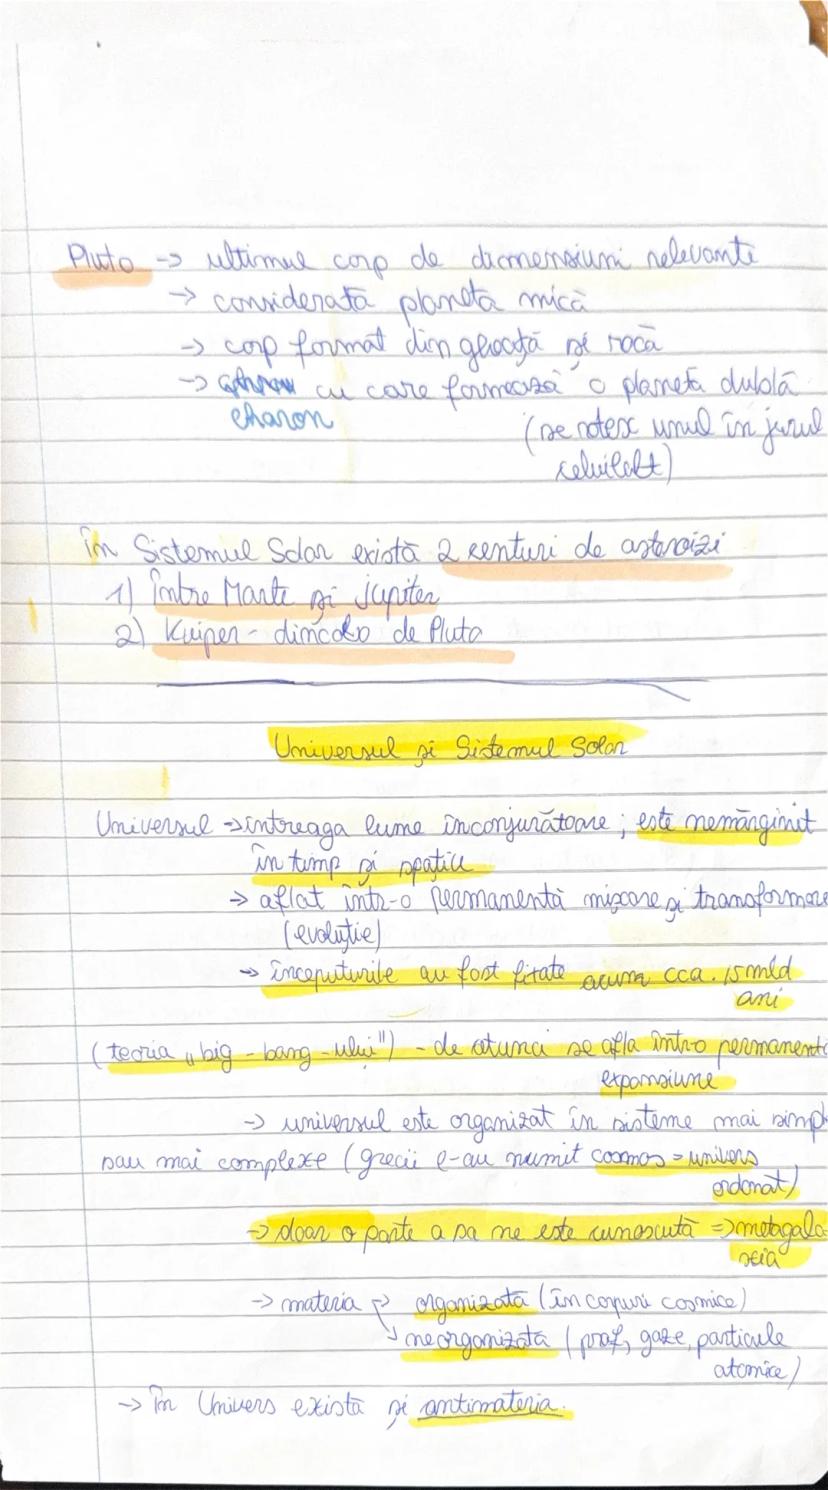 Pluto -> ultimul corp de dimensiuni relevante
-> considerată planetă mică
-> corp format din gheață și rocă
-> cu care formează o planetă dublă
charon
(se rotesc unul în jurul
celuilalt)
în Sistemul Solar există 2 centuri de asteroizi
1) între Marte și jupiter
2) Kuiper - dincolo de Pluto
Universul și Sistemul Solar
Universul -> întreaga lume înconjurătoare ; este nemărginit
în timp și spațiu
-> aflat într-o permanentă mișcare și transformare
(evoluție)
-> începuturile au fost fixate acum cca. 15 mld
ani
(teoria „big - bang - ului") - de atunci se afla într-o permanentă
expansiune
-> universul este organizat în sisteme mai simpl
sau mai complexe (grecii l-au numit cosmos = univers
ordonat)
-> doar o parte a sa ne este cunoscută => metagala
xia
-> materia -> organizată (în corpuri cosmice)
-> neorganizată (praf, gaze, particule
atomice)
-> în Univers există și antimateria.